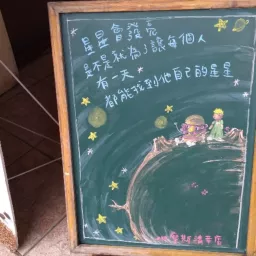 星星會發亮
是不是就為了讓每個人
有一天
都能找到他自己的星星